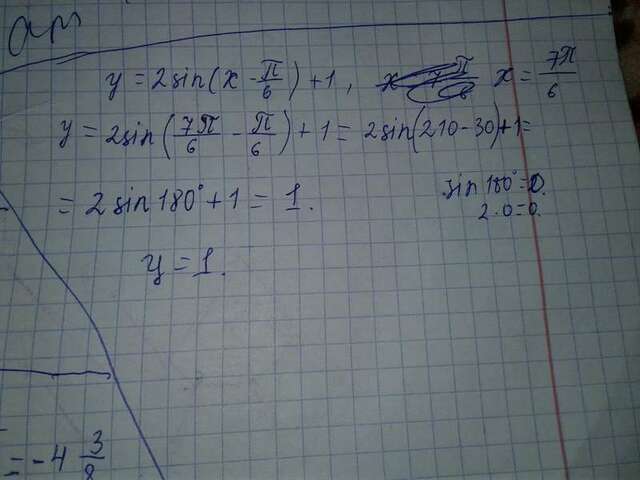 y = 2sin(x - π/6) + 1, x = 7π/6
y = 2sin(7π/6 - π/6) + 1 = 2sin(210-30)+1=
= 2 sin 180° + 1 = 1.
sin 180° = 0.
2·0=0.
y = 1.
= -4 3/8